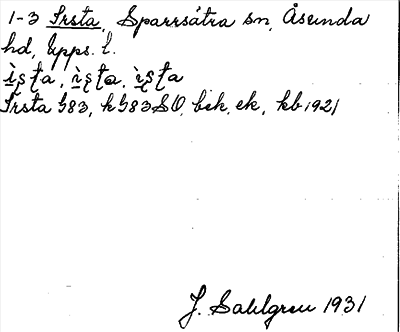 1-3 Irsta, Sparrsätra sn, Åsunda
hd, Upps. l.
ı̀ṣṭa, ı̀ṣṭa, ı̀ṣṭa
Irsta G83, hG83SO, beh, ek, kb 1921
J. Sahlgren 1931